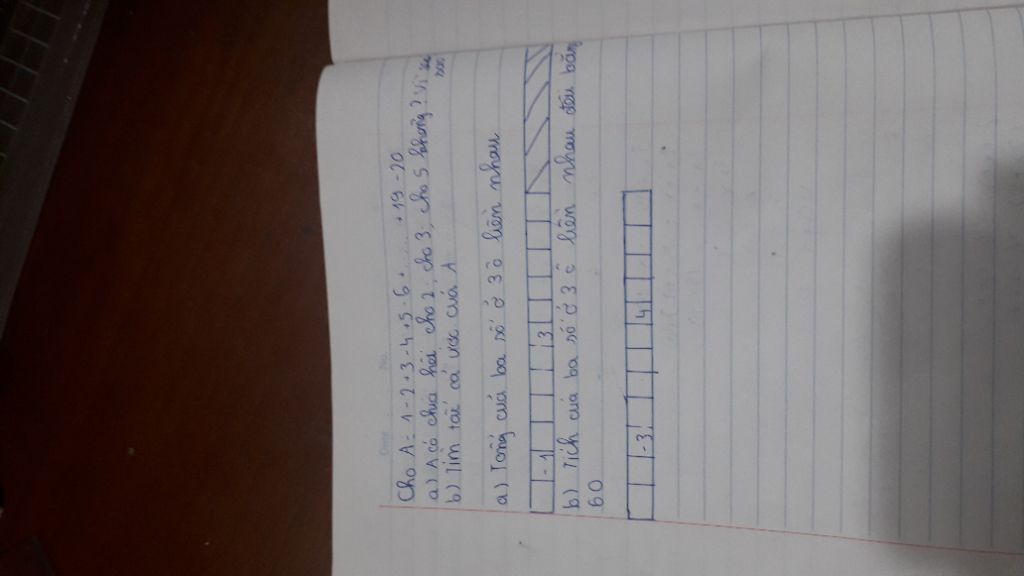 Date No.
Cho A = 1 - 2 + 3 - 4 + 5 - 6 + ...... + 19 - 20
a) A có chia hết cho 2; cho 3; cho 5 không? Vì sao
b) Tìm tất cả ước của A
a) Tổng của ba số ở 3 ô liền nhau
-1 3
b) Tích của ba số ở 3 ô liền nhau đều bằng
60
-3 4